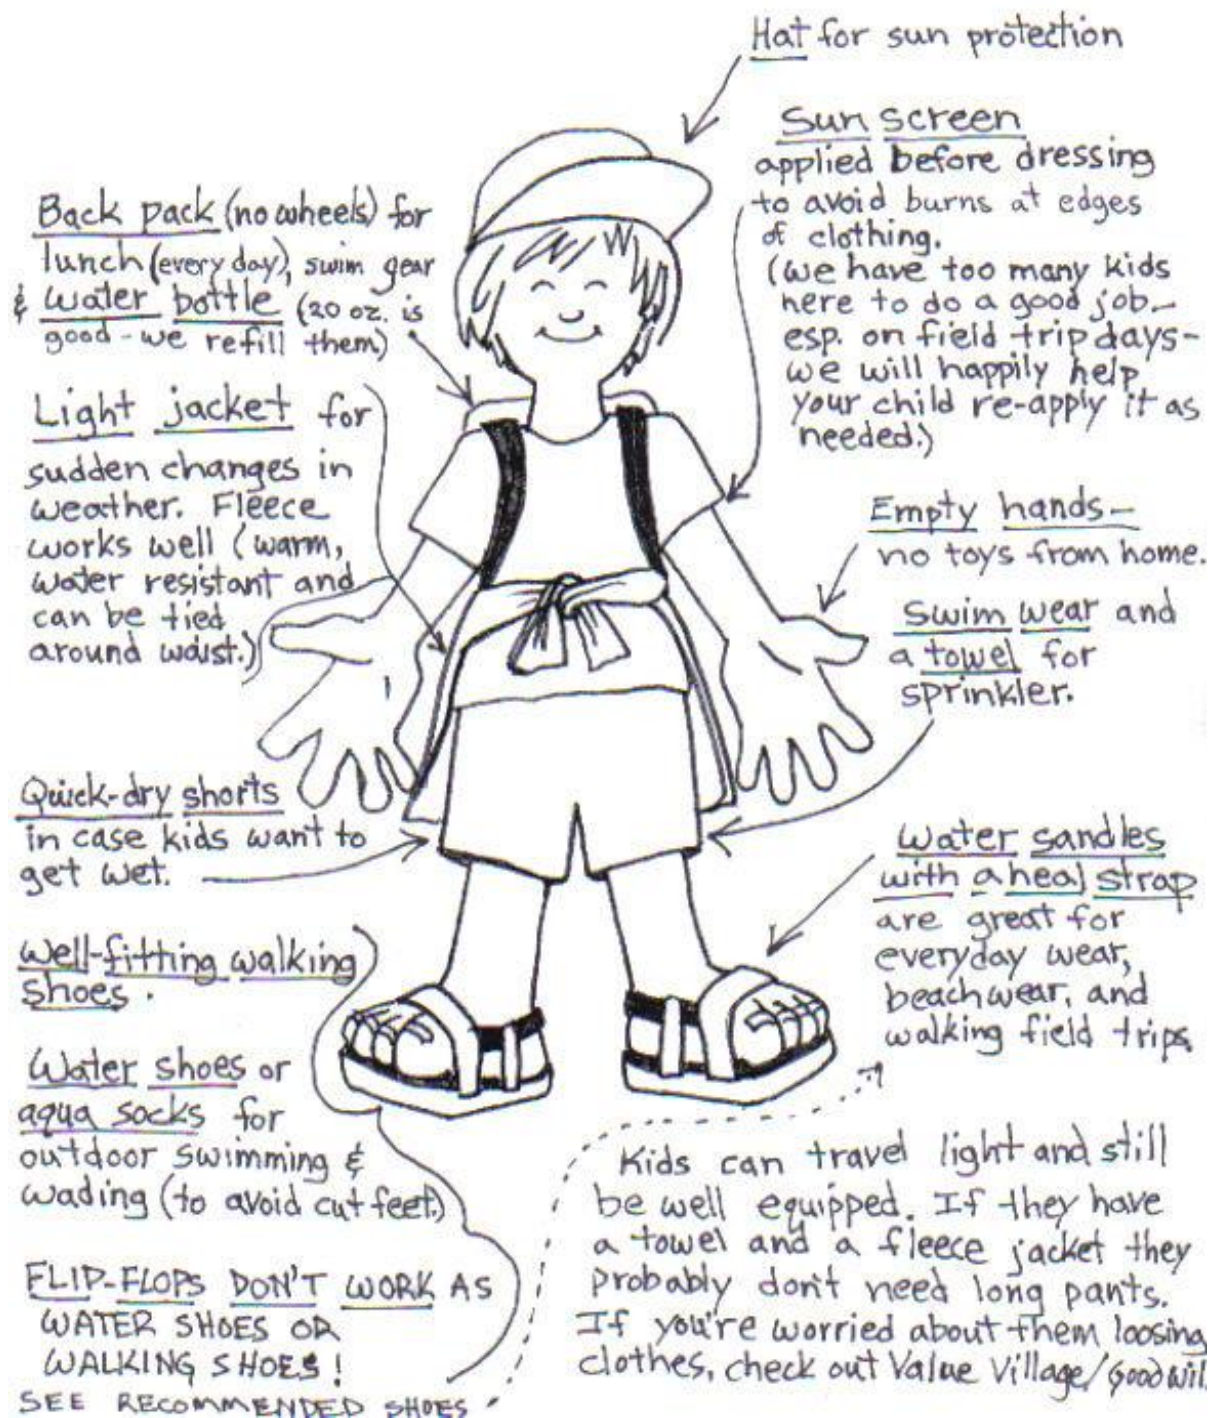 Hat for sun protection
Sun screen
applied before dressing
to avoid burns at edges
of clothing.
(we have too many kids
here to do a good job-
esp. on field trip days-
we will happily help
your child re-apply it as
needed.)
Back pack (no wheels) for
lunch (every day), swim gear
& water bottle (20 oz. is
good - we refill them)
Light jacket for
sudden changes in
weather. Fleece
works well (warm,
water resistant and
can be tied
around waist.)
Empty hands-
no toys from home.
Swim wear and
a towel for
sprinkler.
Quick-dry shorts
in case kids want to
get wet.
Water sandles
with a heal strap
are great for
everyday wear,
beachwear, and
walking field trips.
Well-fitting walking
shoes.
Water shoes or
aqua socks for
outdoor swimming &
wading (to avoid cut feet.)
FLIP-FLOPS DON'T WORK AS
WATER SHOES OR
WALKING SHOES!
SEE RECOMMENDED SHOES
Kids can travel light and still
be well equipped. If they have
a towel and a fleece jacket they
probably don't need long pants.
If you're worried about them loosing
clothes, check out Value Village/Goodwil